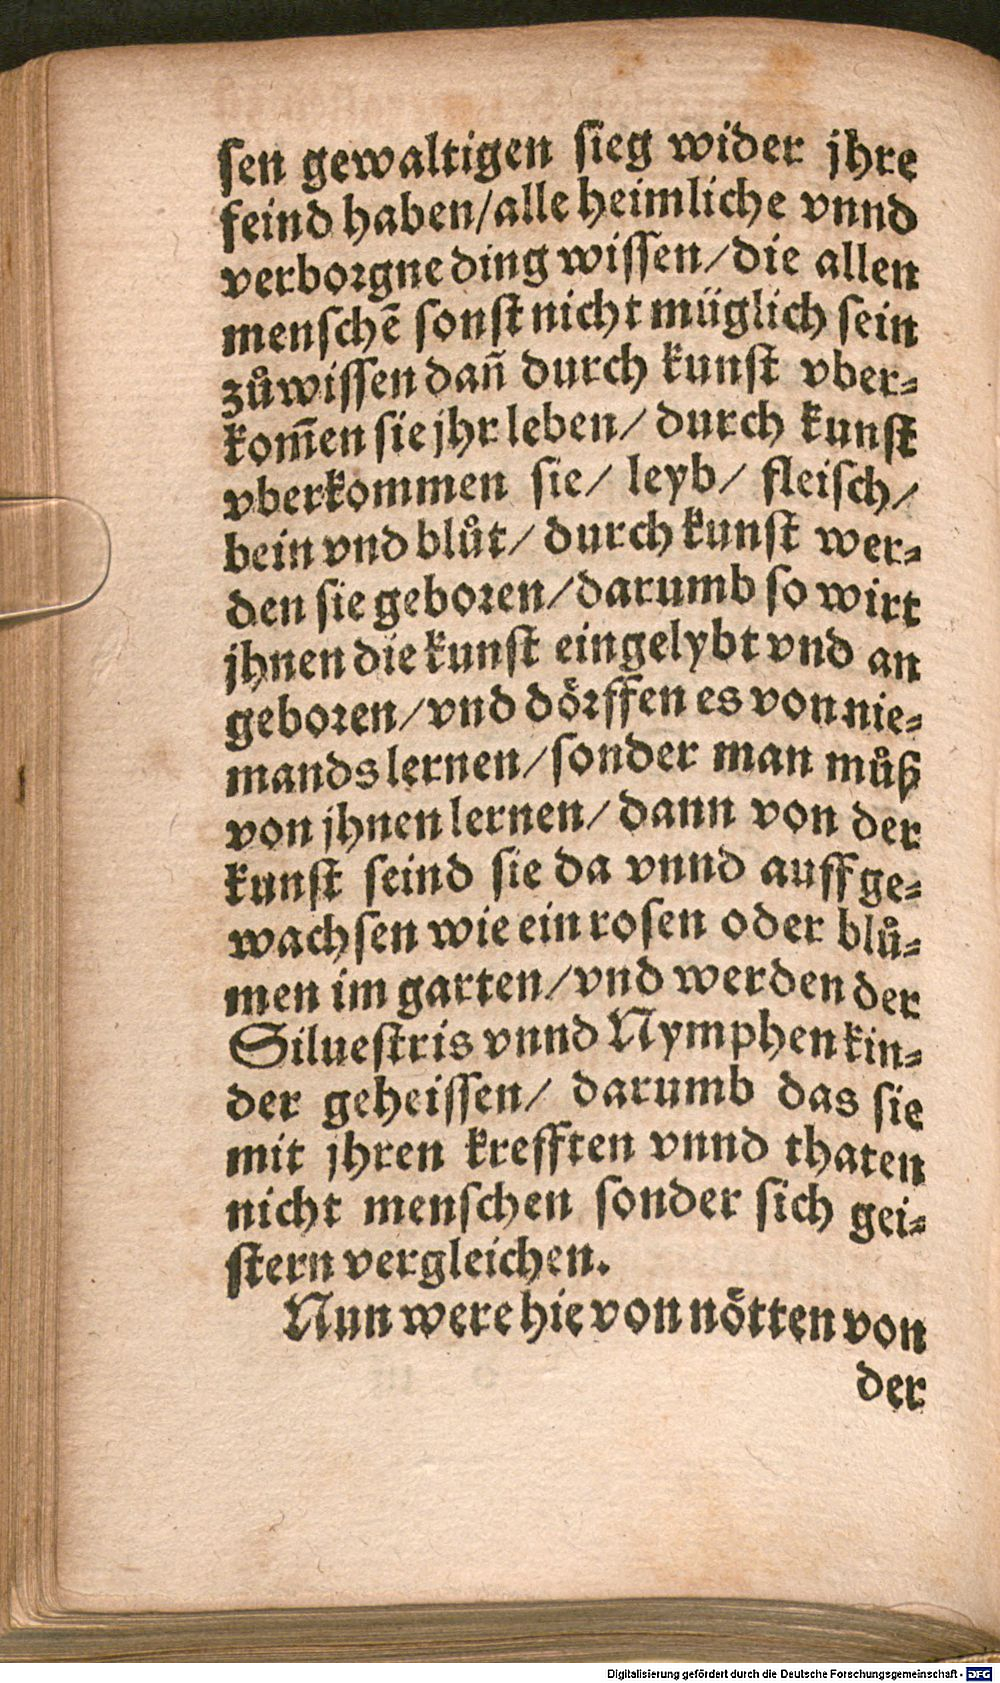 sen gewaltigen sieg wider jhre
feind haben/alle heimliche vnnd
verborgne ding wissen/die allen
menschē sonst nicht müglich sein
zůwissen dañ durch kunst vber-
kom̄en sie jhr leben/ durch kunst
vberkommen sie/ leyb/ fleisch/
bein vnd blůt/ durch kunst wer-
den sie geboren/darumb so wirt
jhnen die kunst eingelybt vnd an
geboren/vnd doͤrffen es von nie-
mands lernen/sonder man můß
von jhnen lernen/ dann von der
kunst seind sie da vnnd auffge-
wachsen wie ein rosen oder blů-
men im garten/vnd werden der
Siluestris vnnd Nymphen kin-
der geheissen/ darumb das sie
mit jhren krefften vnnd thaten
nicht menschen sonder sich gei-
stern vergleichen.
Nun were hie von noͤtten von
der
Digitalisierung gefördert durch die Deutsche Forschungsgemeinschaft - DFG